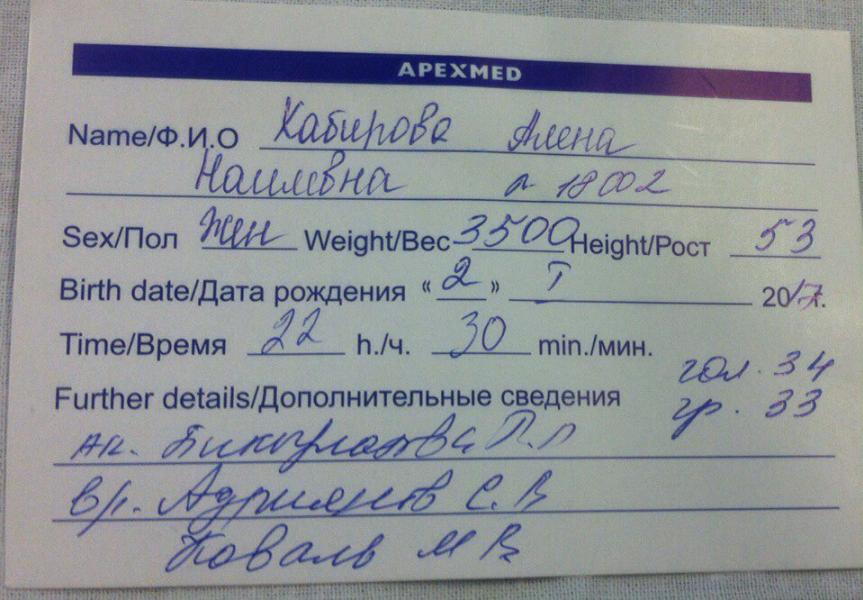 APEXMED
Name/Ф.И.О Хабирова Алена
Наилевна 18002
Sex/Пол Жен Weight/Вес 3500 Height/Рост 53
Birth date/Дата рождения «2» I 2017г.
Time/Время 22 h./ч. 30 min./мин.
гол. 34
Further details/Дополнительные сведения
гр. 33
ак.
вр. С. В
Коваль М В